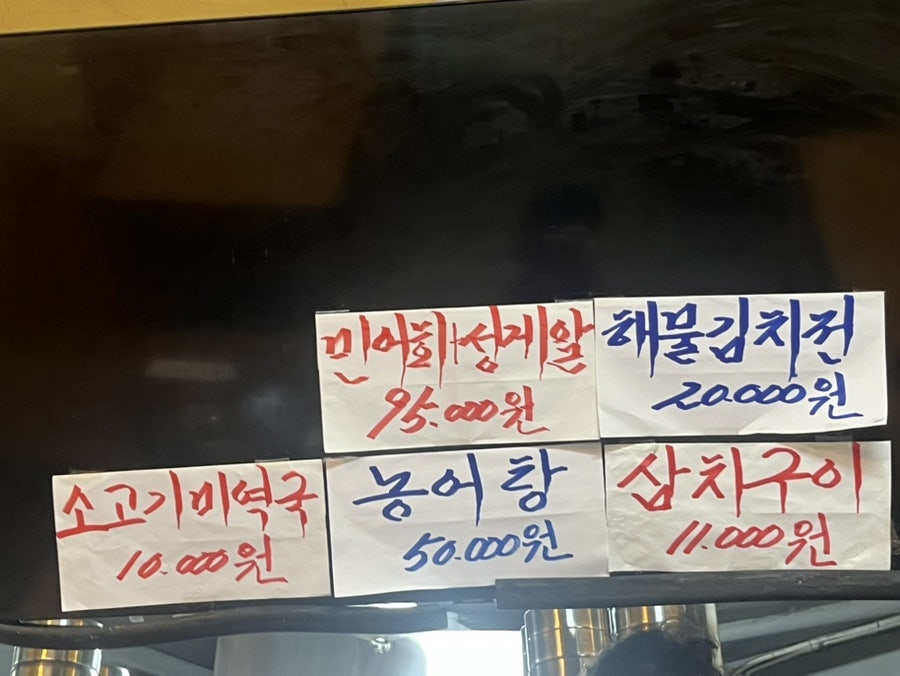 민어회+성게알
95.000원
해물김치전
20.000원
소고기미역국
10.000원
농어탕
50.000원
삼치구이
11.000원